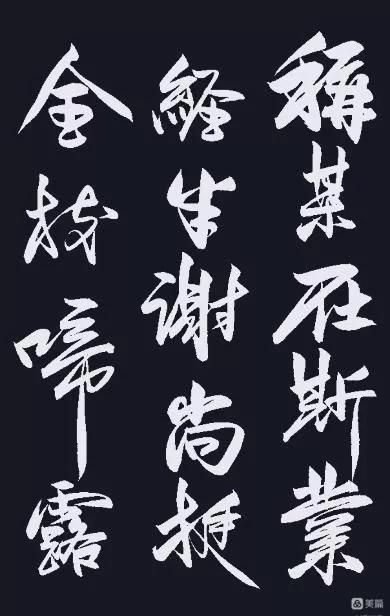 稱某在斯業
經生謝尚挺
金枝啼露
美篇